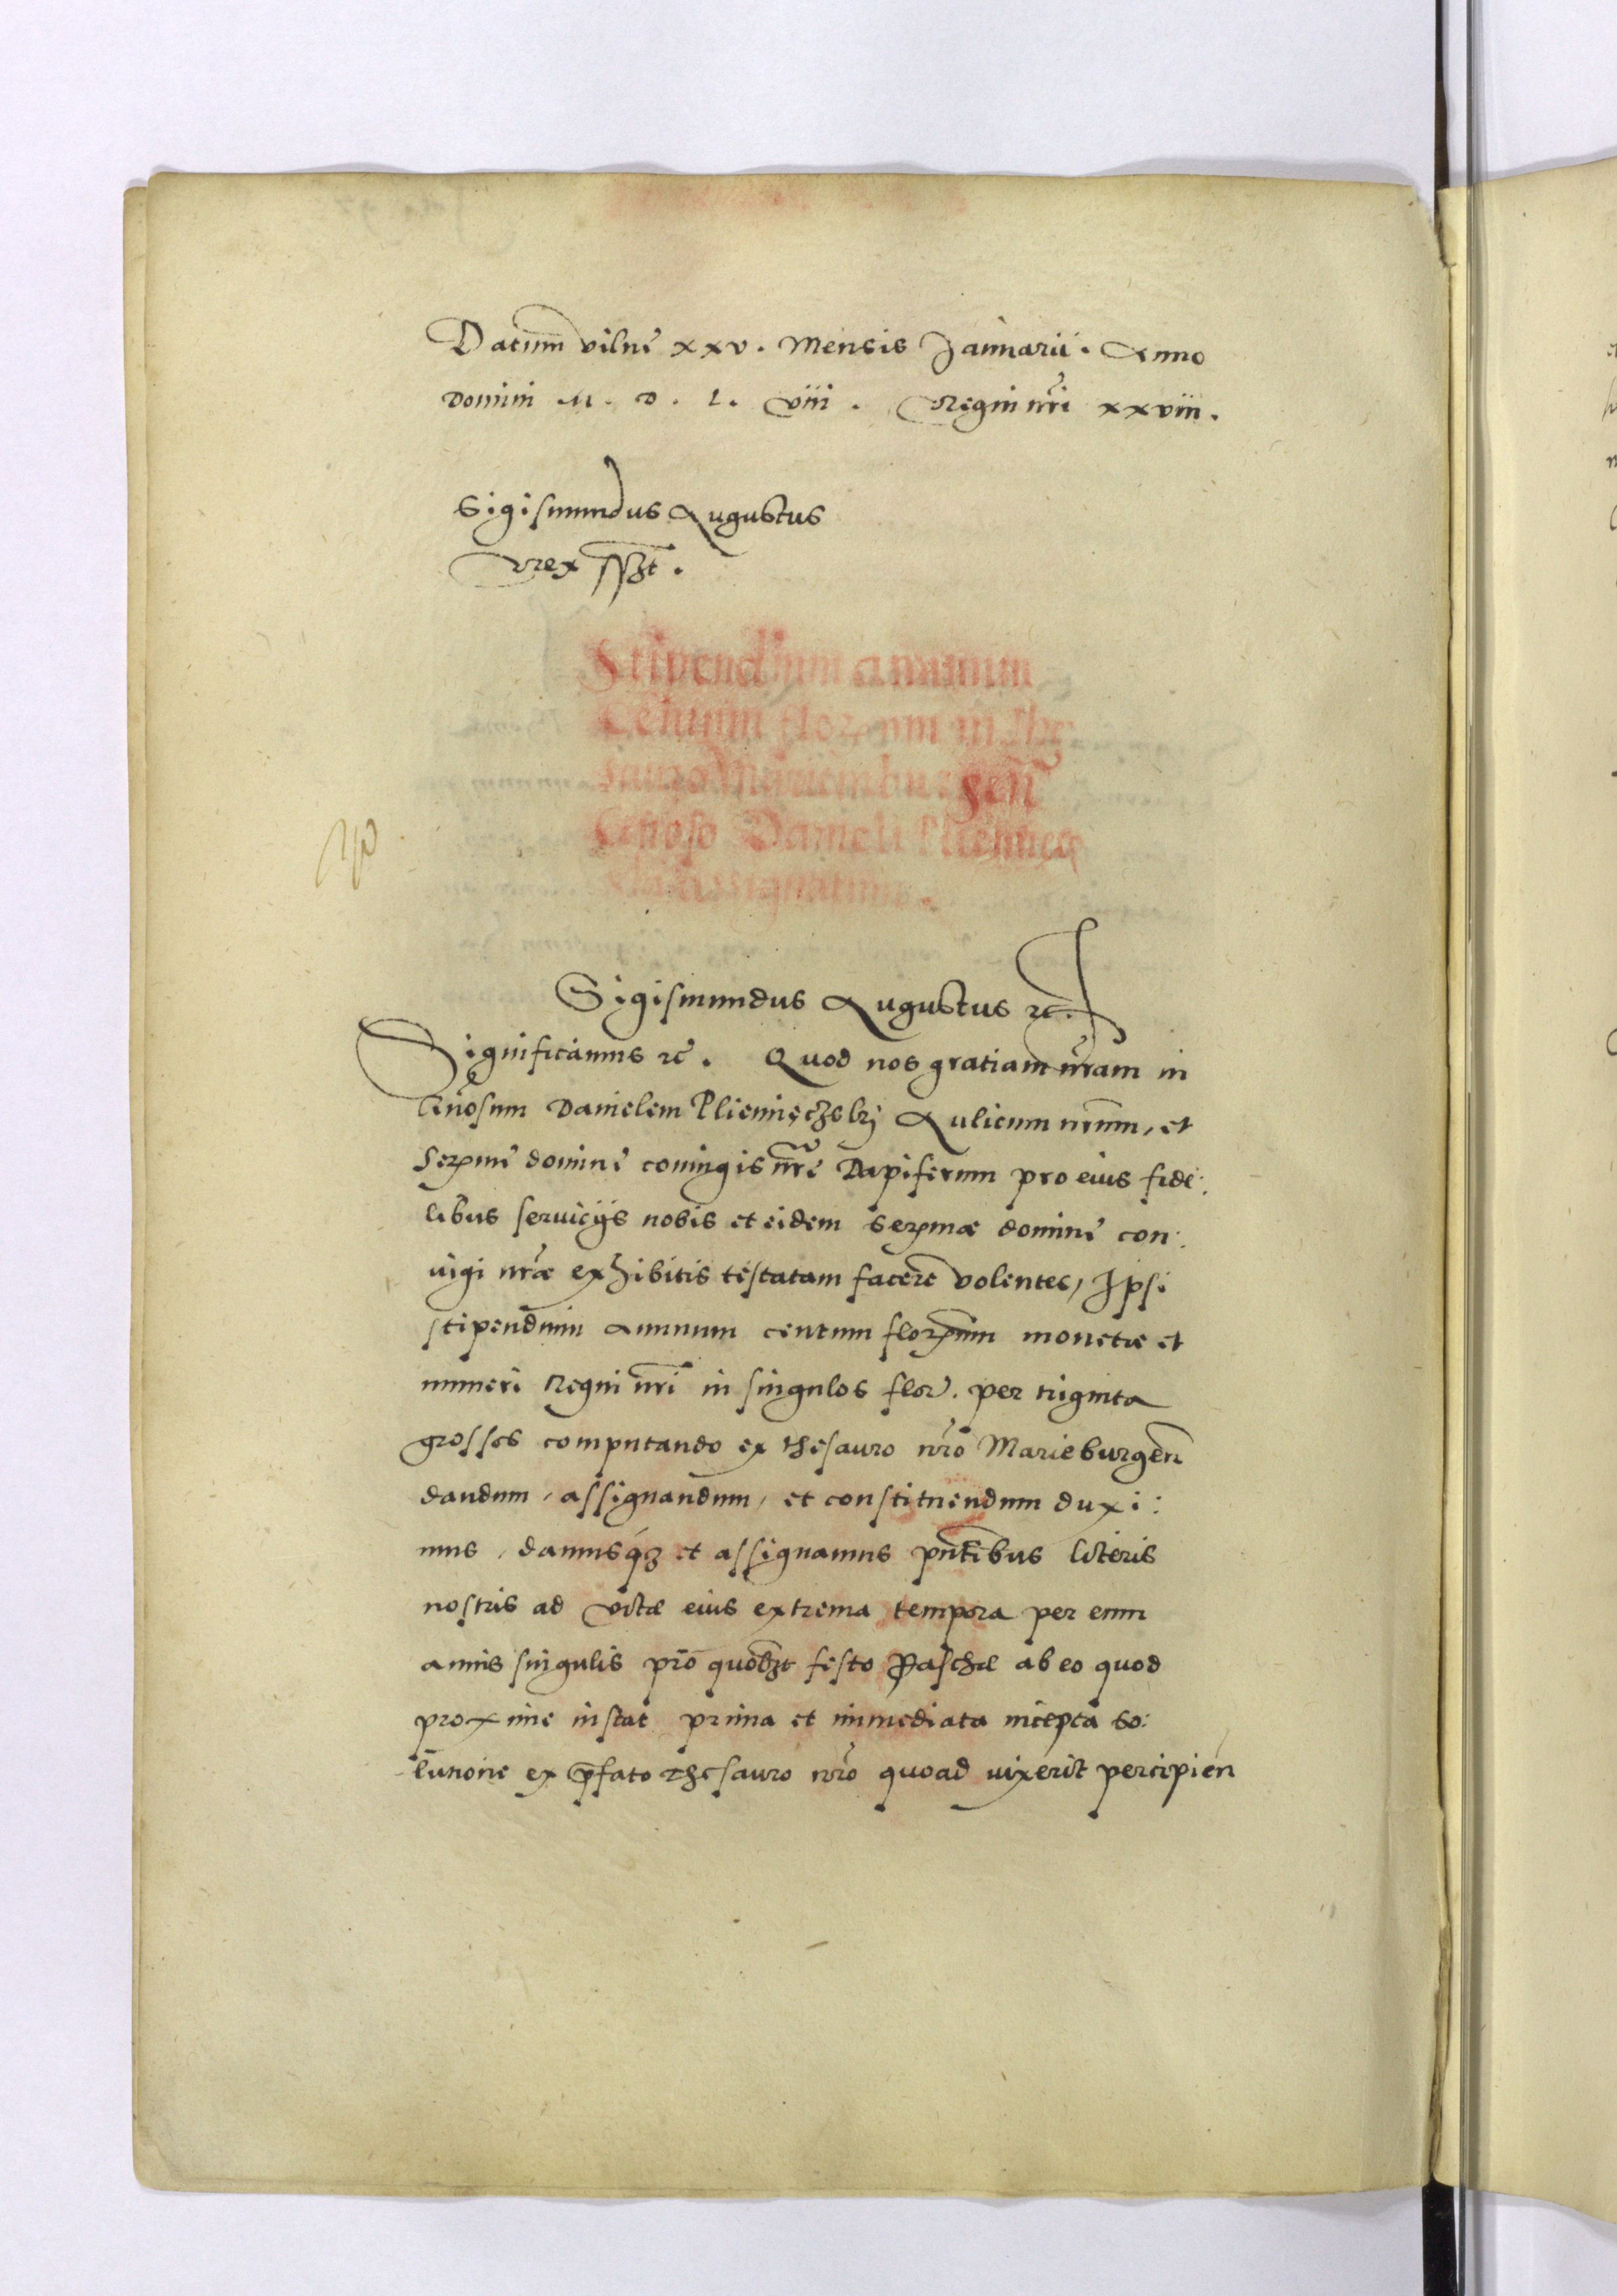 Datum vilnẽ xxv. Mensis Januarii. Anno
Domini M. D. L. viii. Regni nr̃i xxviii.
Sigismundus Augustus
Rex sszt.
Stipendium annuum
Centum florenum in The
sauro Marienburgeñ
Gñoso Danieli Plemięcz
ski assignatum.
Sigismundus Augustus rc̃.
Significamus rc̃. Quod nos gratiam nr̃am in
Gñosum Danielem Pliemięczskj Aulicum nr̃um, et
Serm̃e domine coniugis nr̃e Dapiferum pro eius fide:
libus seruicijs nobis et eidem Serm̃æ domine con:
iugi nr̃æ exhibitis testatam facere volentes, Ipsi
stipendium annuum centum florenum monetæ et
numeri Regni nr̃i in singulos flor. per triginta
grosses computando ex thesauro nr̃o Marieburgeñ
dandum, assignandum, et constituendum duxi:
mus, damusqz et assignamus pñtibus literis
nostris ad vitæ eius extrema tempora per eum
annis singulis pro quolzt festo Paschæ ab eo quod
proxime instat prima et immediata incepta so:
lutione ex p̃fato thesauro nr̃o quoad uixerit percipieñ